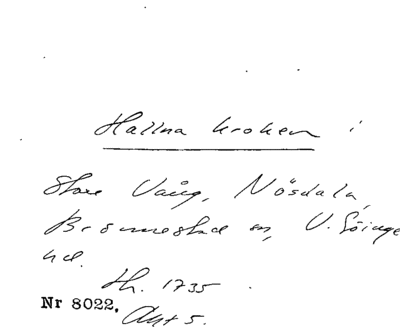 Hallna kroken i
Store Vång, Nösdala,
Brönnestad sn, V. Göinge
hd.
Th. 1735
Nr 8022, Akt 5.